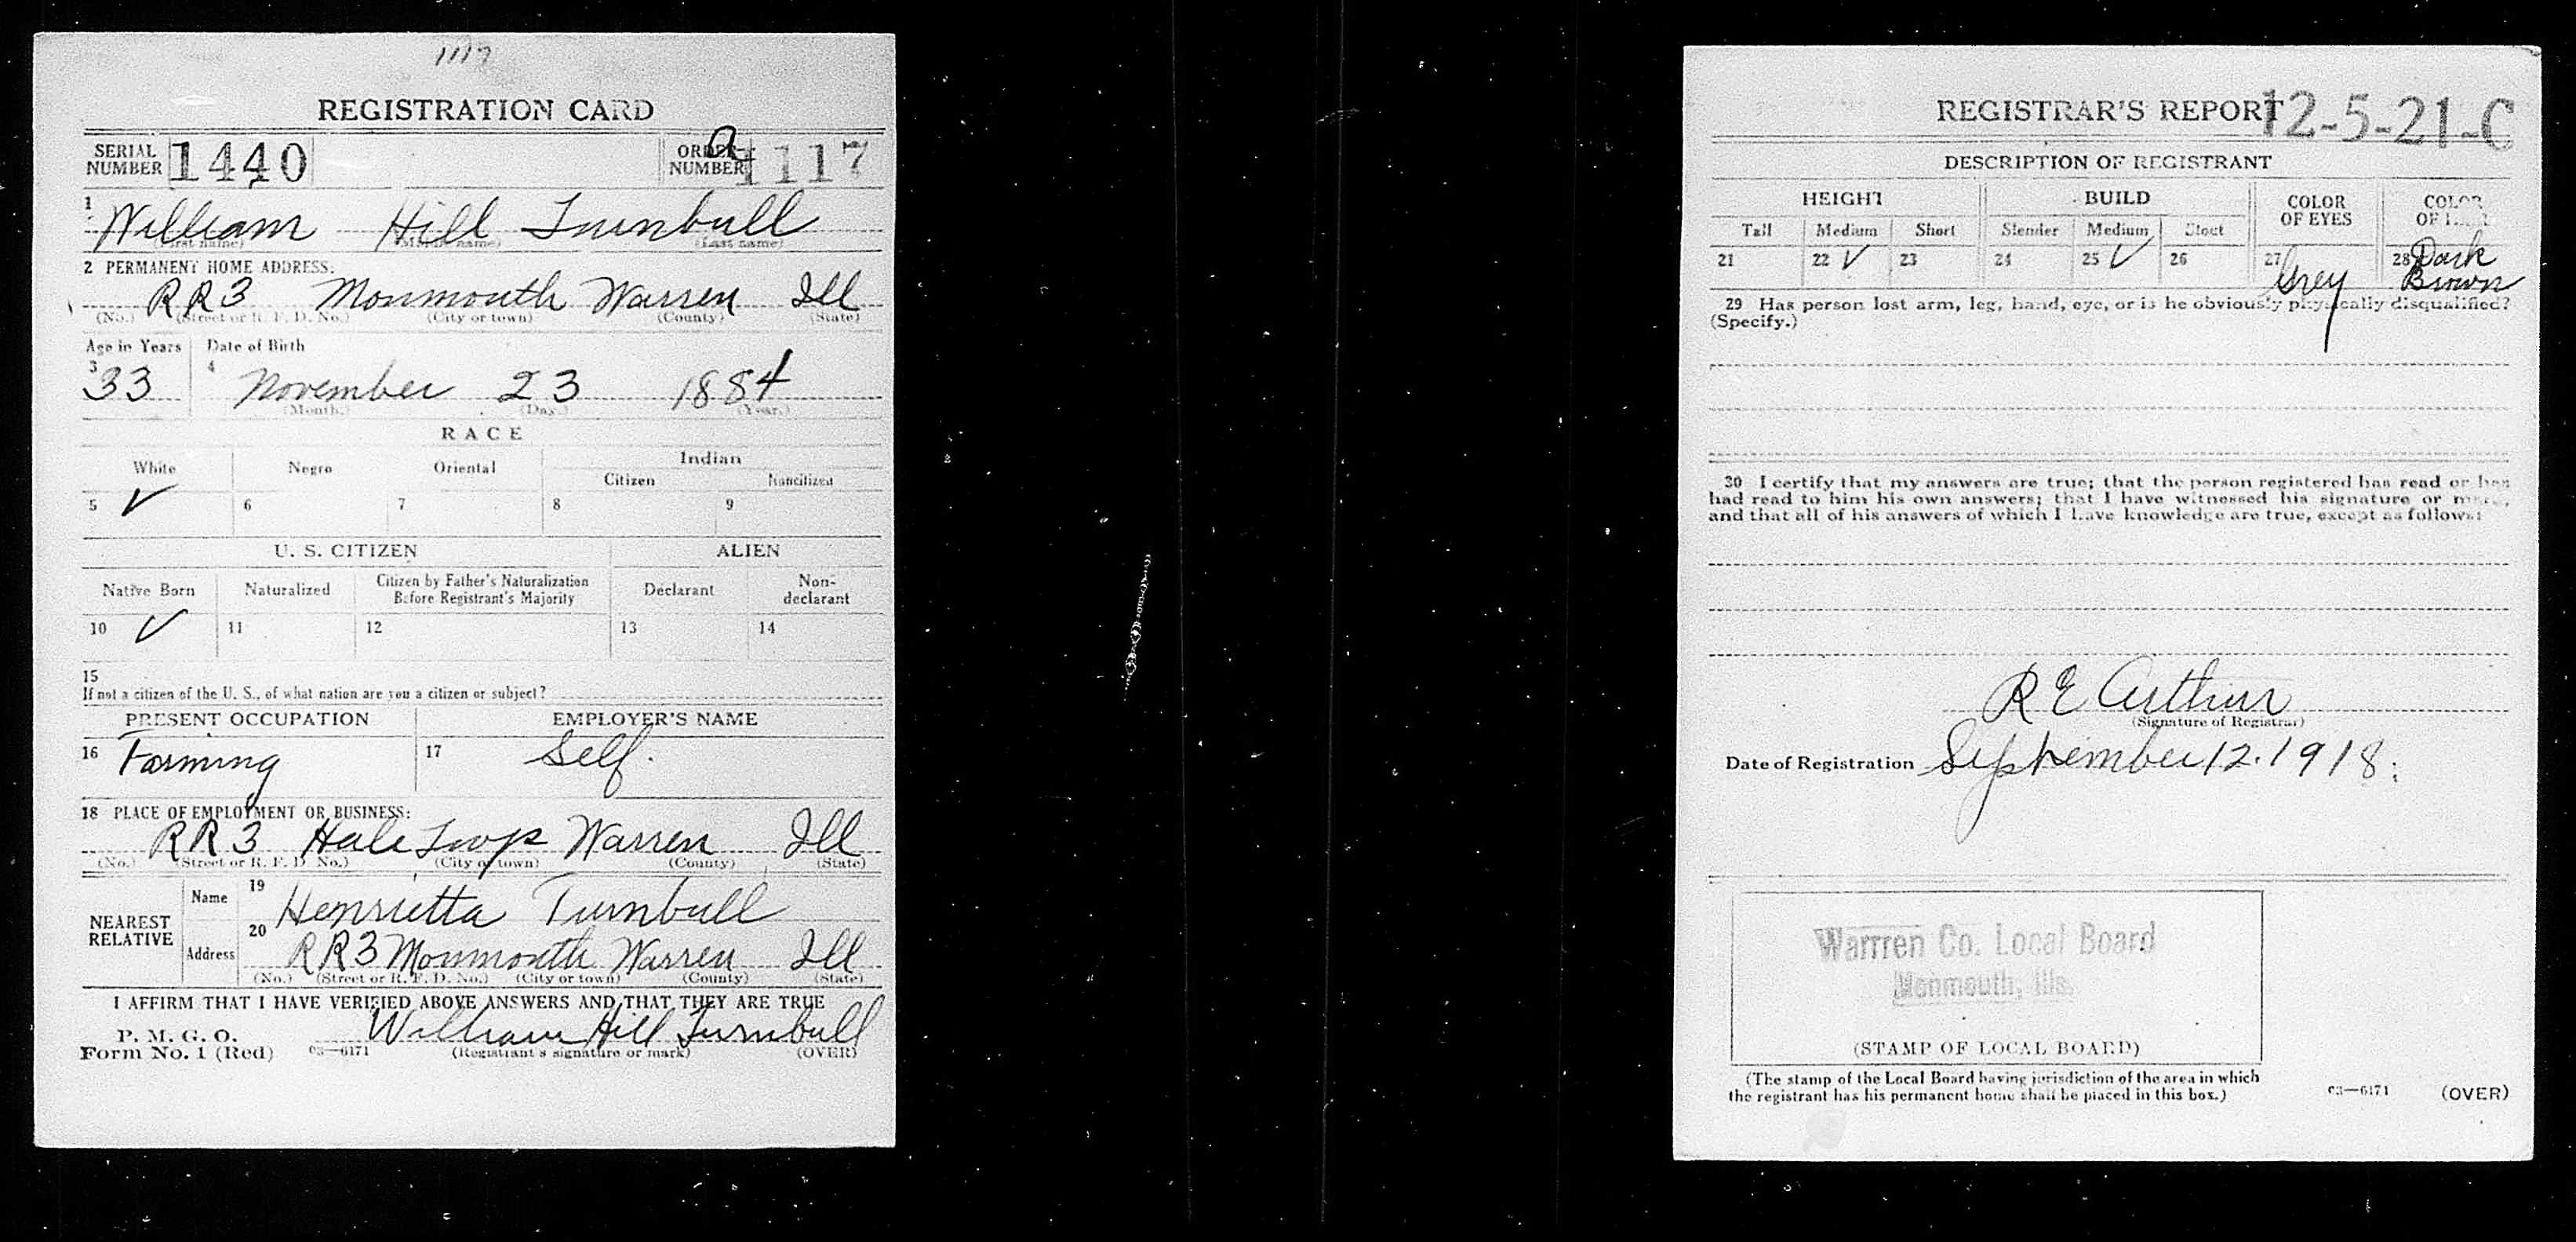 1117
REGISTRATION CARD
SERIAL NUMBER 1440 ORDER NUMBER a 1117
1 William Hill Turnbull
(First name) (Middle name) (Last name)
2 PERMANENT HOME ADDRESS:
RR3 Monmouth Warren Ill
(No.) (Street or R. F. D. No.) (City or town) (County) (State)
Age in Years Date of Birth
3 33 4 November 23 1884
(Month.) (Day.) (Year.)
RACE
White Negro Oriental Indian
Citizen Noncitizen
5 ✓ 6 7 8 9
U. S. CITIZEN ALIEN
Native Born Naturalized Citizen by Father's Naturalization Before Registrant's Majority Declarant Non-declarant
10 ✓ 11 12 13 14
15
If not a citizen of the U. S., of what nation are you a citizen or subject?
PRESENT OCCUPATION EMPLOYER'S NAME
16 Farming 17 Self.
18 PLACE OF EMPLOYMENT OR BUSINESS:
RR3 Hale Twp Warren Ill
(No.) (Street or R. F. D. No.) (City or town) (County) (State)
NEAREST RELATIVE
Name 19 Henrietta Turnbull
Address 20 RR3 Monmouth Warren Ill
(No.) (Street or R. F. D. No.) (City or town) (County) (State)
I AFFIRM THAT I HAVE VERIFIED ABOVE ANSWERS AND THAT THEY ARE TRUE
P. M. G. O.
Form No. 1 (Red) 03—6171 William Hill Turnbull
(Registrant's signature or mark) (OVER)
REGISTRAR'S REPORT 12-5-21-C
DESCRIPTION OF REGISTRANT
HEIGHT BUILD COLOR OF EYES COLOR OF HAIR
Tall Medium Short Slender Medium Stout
21 22 ✓ 23 24 25 ✓ 26 27 Grey 28 Dark Brown
29 Has person lost arm, leg, hand, eye, or is he obviously physically disqualified?
(Specify.)
30 I certify that my answers are true; that the person registered has read or has
had read to him his own answers; that I have witnessed his signature or mark,
and that all of his answers of which I have knowledge are true, except as follows:
R E Arthur
(Signature of Registrar)
Date of Registration September 12. 1918.
Warrren Co. Local Board
Monmouth, Ills.
(STAMP OF LOCAL BOARD)
(The stamp of the Local Board having jurisdiction of the area in which
the registrant has his permanent home shall be placed in this box.)
03—6171 (OVER)